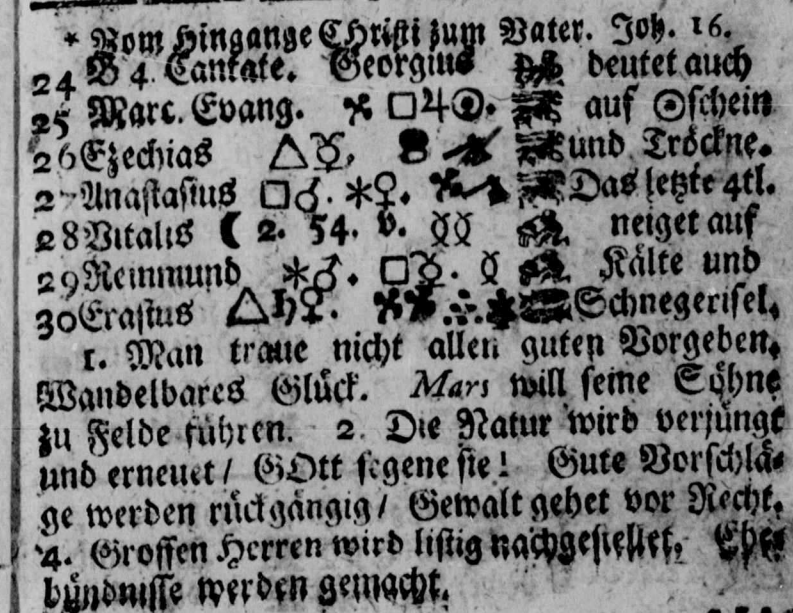 * Vom Hingange CHristi zum Vater. Joh. 16.
24 B 4. Cantate. Georgius deutet auch
25 Marc. Evang. □♃☉. auf ☉schein
26 Ezechias △☿. und Tröckne.
27 Anastasius □♂. ⚹♀. Das letzte 4tl.
28 Vitalis ☾ 2. 54. v. neiget auf
29 Reinmund ⚹♂. □☿. Kälte und
30 Erastus △♄♀. Schnegerisel.
1. Man traue nicht allen guten Vorgeben.
Wandelbares Glück. Mars will seine Söhne
zu Felde führen. 2. Die Natur wird verjüngt
und erneuet / GOtt segene sie! Gute Vorschlä-
ge werden rückgängig / Gewalt gehet vor Recht.
4. Grossen Herren wird listig nachgestellet. Ehe-
bündnisse werden gemacht.